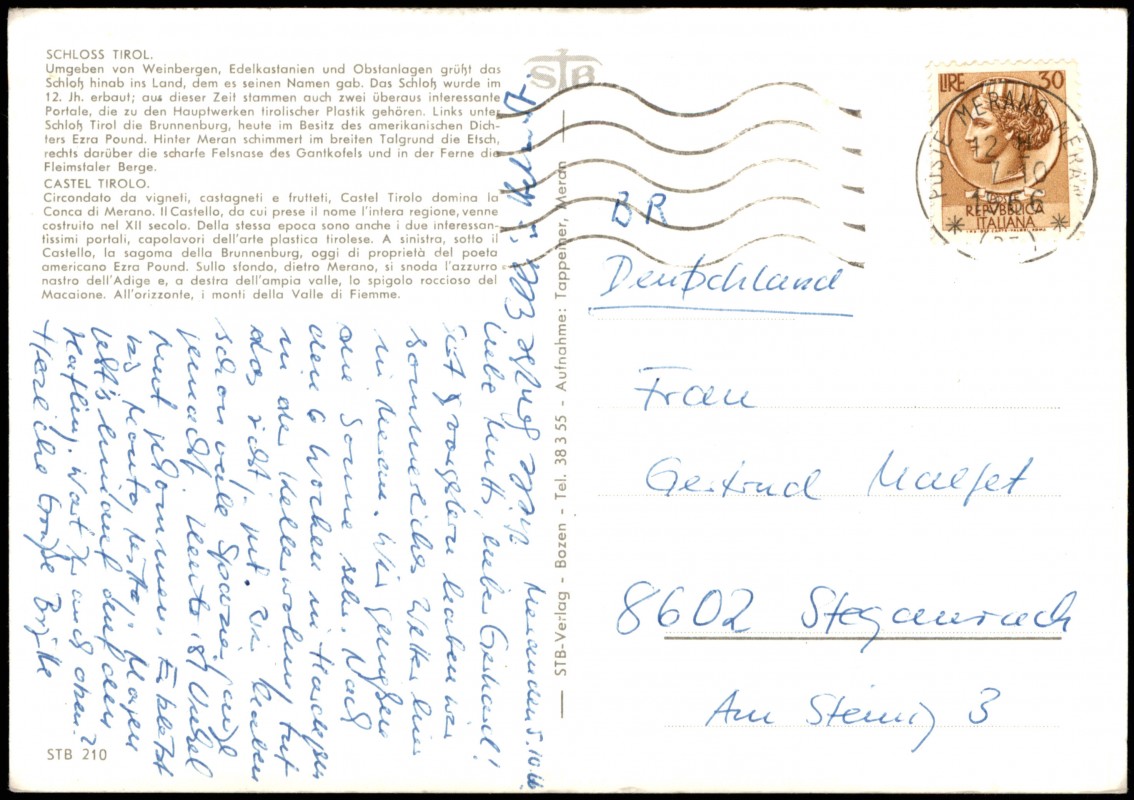 SCHLOSS TIROL.
Umgeben von Weinbergen, Edelkastanien und Obstanlagen grüßt das
Schloß hinab ins Land, dem es seinen Namen gab. Das Schloß wurde im
12. Jh. erbaut; aus dieser Zeit stammen auch zwei überaus interessante
Portale, die zu den Hauptwerken tirolischer Plastik gehören. Links unter
Schloß Tirol die Brunnenburg, heute im Besitz des amerikanischen Dich-
ters Ezra Pound. Hinter Meran schimmert im breiten Talgrund die Etsch,
rechts darüber die scharfe Felsnase des Gantkofels und in der Ferne die
Fleimstaler Berge.
CASTEL TIROLO.
Circondato da vigneti, castagneti e frutteti, Castel Tirolo domina la
Conca di Merano. Il Castello, da cui prese il nome l'intera regione, venne
costruito nel XII secolo. Della stessa epoca sono anche i due interessan-
tissimi portali, capolavori dell'arte plastica tirolese. A sinistra, sotto il
Castello, la sagoma della Brunnenburg, oggi di proprietà del poeta
americano Ezra Pound. Sullo sfondo, dietro Merano, si snoda l'azzurro
nastro dell'Adige e, a destra dell'ampia valle, lo spigolo roccioso del
Macaione. All'orizzonte, i monti della Valle di Fiemme.
STB
STB-Verlag - Bozen - Tel. 38355 - Aufnahme: Tappeiner, Meran
STB 210
LIRE 30
REPVBBLICA
ITALIANA
POSTE MERANO
BR
Deutschland
Frau
Gertrud
8602 Stegaurach
Am Steinig 3
Meran, den 5.10.
Liebe Mutti, lieber Gerhard!
Seit vorgestern haben wir
sommerliches Wetter hier
in Meran. Wir genießen
die Sonne sehr. Nach
den 6 Wochen in
in der Kellerwohnung tut
das recht gut. Wir haben
schon viele Spaziergänge
gemacht. Heute ist Onkel
gekommen. Er bleibt
bis Montag. Morgen
geht's hinauf
Hafling. Wart Ihr auch oben?
Herzliche Grüße